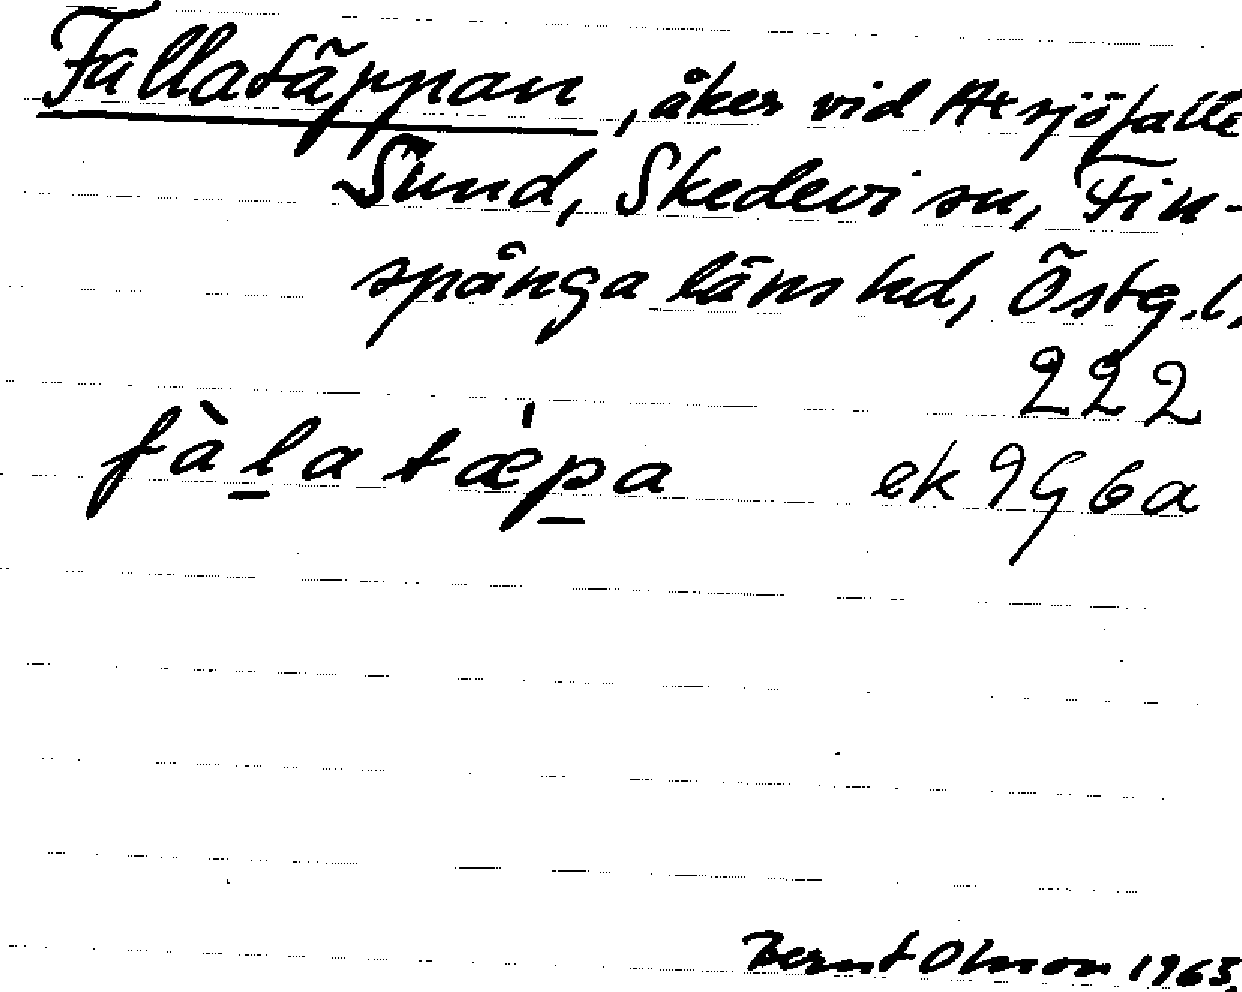 Fallatäppan, åker vid Atsjöfalle
Sund, Skedevi sn, Fin-
spånga läns hd, Östg.l.
222
fàlatæ̍pa ek 9G6a
Bernt Olsson 1963.